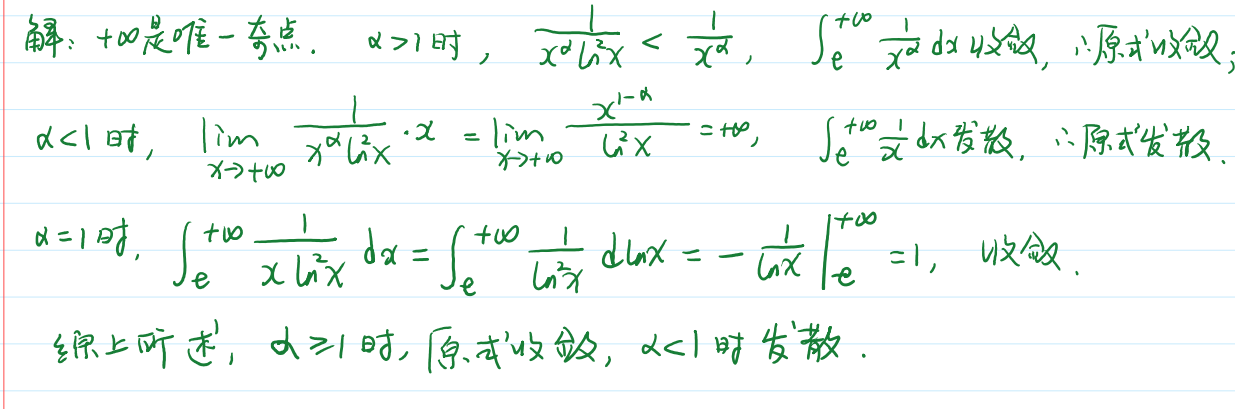 解：+∞是唯一奇点. α>1时, \frac{1}{x^α ln²x} < \frac{1}{x^α}, ∫_e^{+∞} \frac{1}{x^α} dx 收敛, ∴原式收敛;
α<1时, \lim_{x→+∞} \frac{1}{x^α ln²x} · x = \lim_{x→+∞} \frac{x^{1-α}}{ln²x} = +∞, ∫_e^{+∞} \frac{1}{x} dx 发散, ∴原式发散.
α=1时, ∫_e^{+∞} \frac{1}{x ln²x} dx = ∫_e^{+∞} \frac{1}{ln²x} dlnx = -\frac{1}{lnx} |_e^{+∞} = 1, 收敛.
综上所述, α≥1时, 原式收敛, α<1时发散.